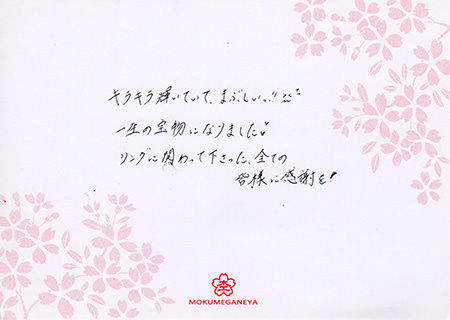 キラキラ輝いていて、まぶしいっ!!
一生の宝物になりました
リングに関わって下さった、全ての
皆様に感謝を!
MOKUMEGANEYA